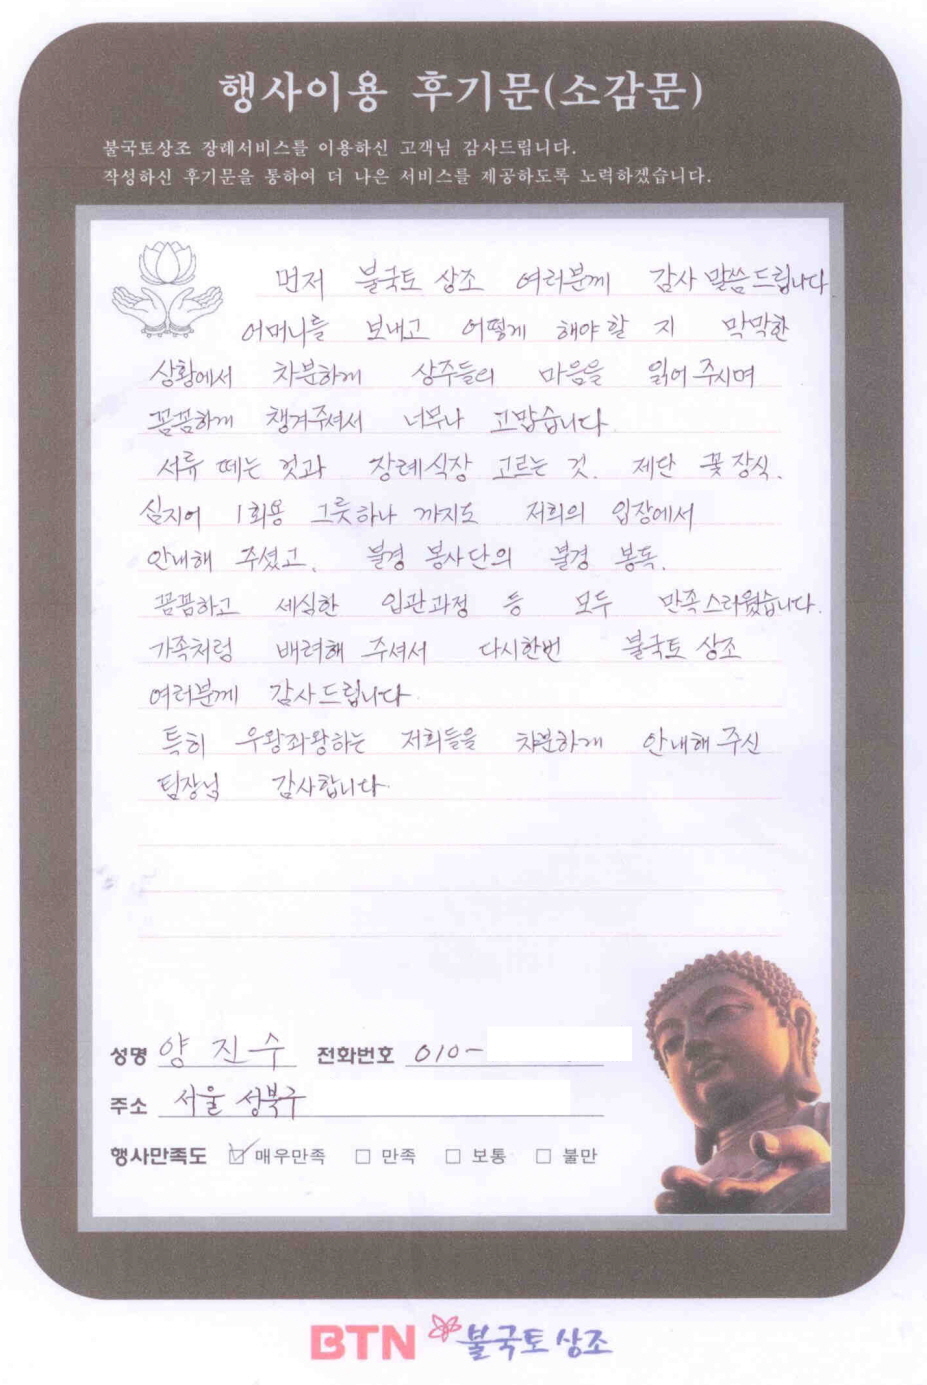 행사이용 후기문(소감문)
불국토상조 장례서비스를 이용하신 고객님 감사드립니다.
작성하신 후기문을 통하여 더 나은 서비스를 제공하도록 노력하겠습니다.
먼저 불국토 상조 여러분께 감사 말씀드립니다
어머니를 보내고 어떻게 해야 할 지 막막한
상황에서 차분하게 상주들의 마음을 읽어 주시며
꼼꼼하게 챙겨주셔서 너무나 고맙습니다.
서류 떼는 것과 장례식장 고르는 것. 제단 꽃 장식.
심지어 1회용 그릇하나 까지도 저희의 입장에서
안내해 주셨고, 불경 봉사단의 불경 봉독,
꼼꼼하고 세심한 입관과정 등 모두 만족스러웠습니다.
가족처럼 배려해 주셔서 다시한번 불국토 상조
여러분께 감사드립니다.
특히 우왕좌왕하는 저희들을 차분하게 안내해 주신
팀장님 감사합니다.
성명 양 진 수 전화번호 010-
주소 서울 성북구
행사만족도 ☑ 매우만족 □ 만족 □ 보통 □ 불만
BTN 불국토 상조